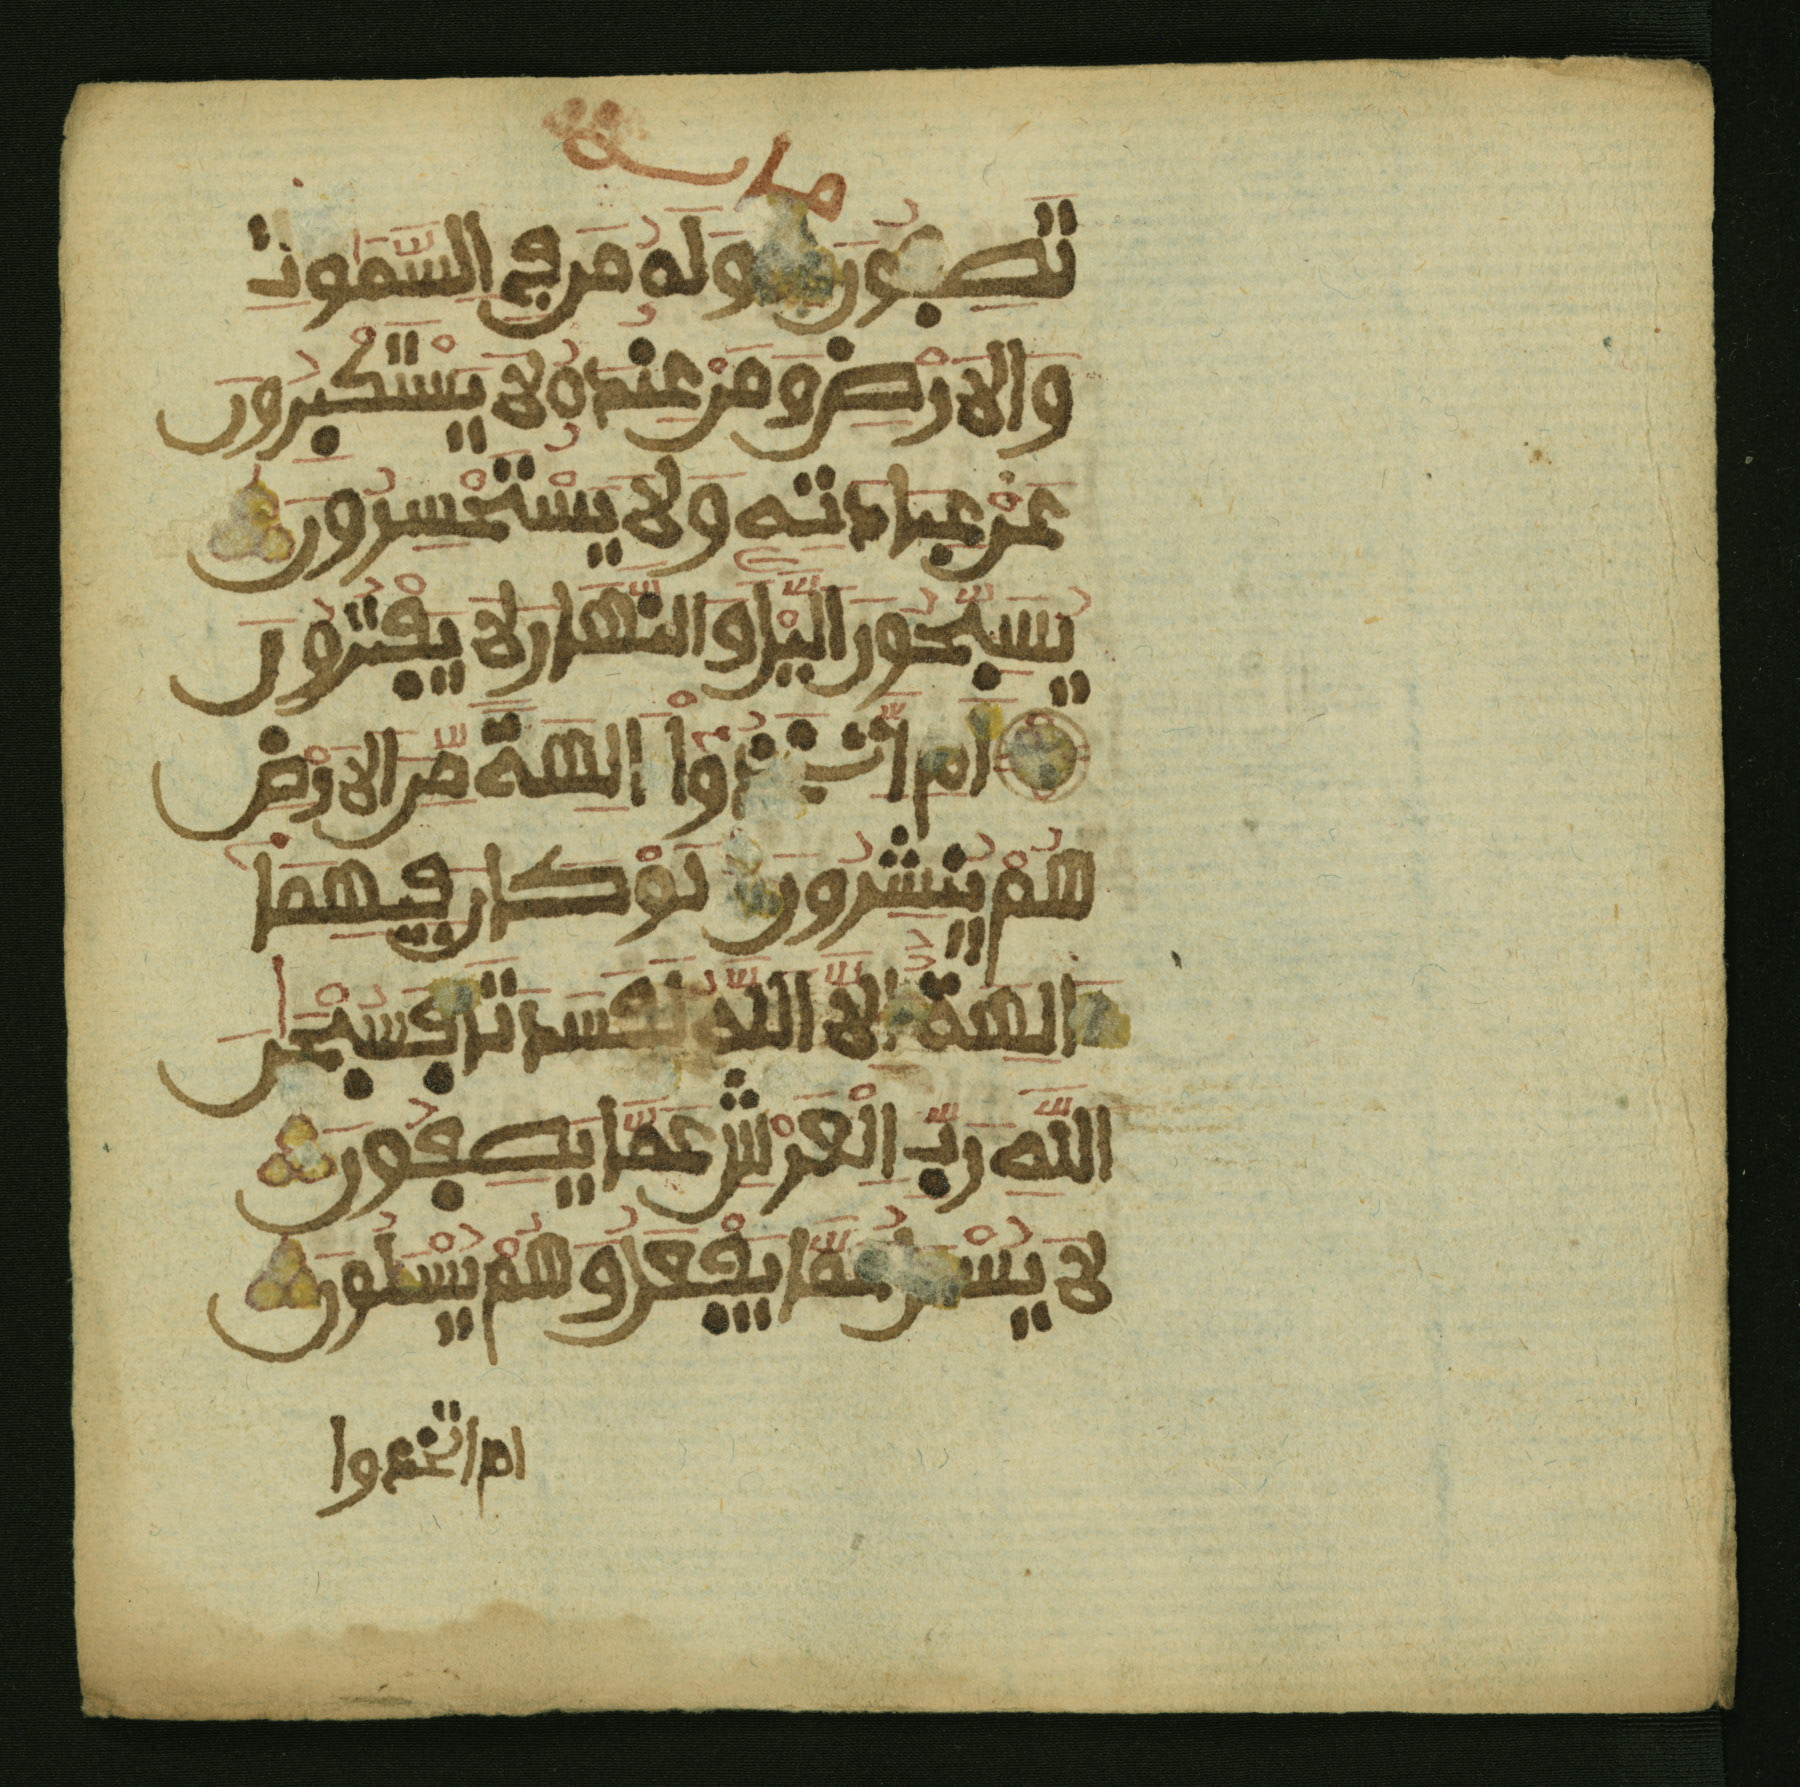 تَصِفُونَ وَلَهُ مَن فِي السَّمَوَتِ
وَالاَرْضِ وَمَنْ عِندَهُ لاَ يَسْتَكْبِرُونَ
عَنْ عِبَادَتِهِ وَلاَ يَسْتَحْسِرُونَ
يُسَبِّحُونَ الَّيْلَ وَالنَّهَارَ لاَ يَفْتُرُونَ
أَمِ اتَّخَذُواْ ءَالِهَةً مِّنَ الاَرْضِ
هُمْ يُنشِرُونَ لَوْ كَانَ فِيهِمَا
ءَالِهَةٌ اِلاَّ اللَّهُ لَفَسَدَتَا فَسُبْحَنَ
اللَّهِ رَبِّ الْعَرْشِ عَمَّا يَصِفُونَ
لاَ يُسْـَٔلُ عَمَّا يَفْعَلُ وَهُمْ يُسْـَٔلُونَ
ام اتخذوا